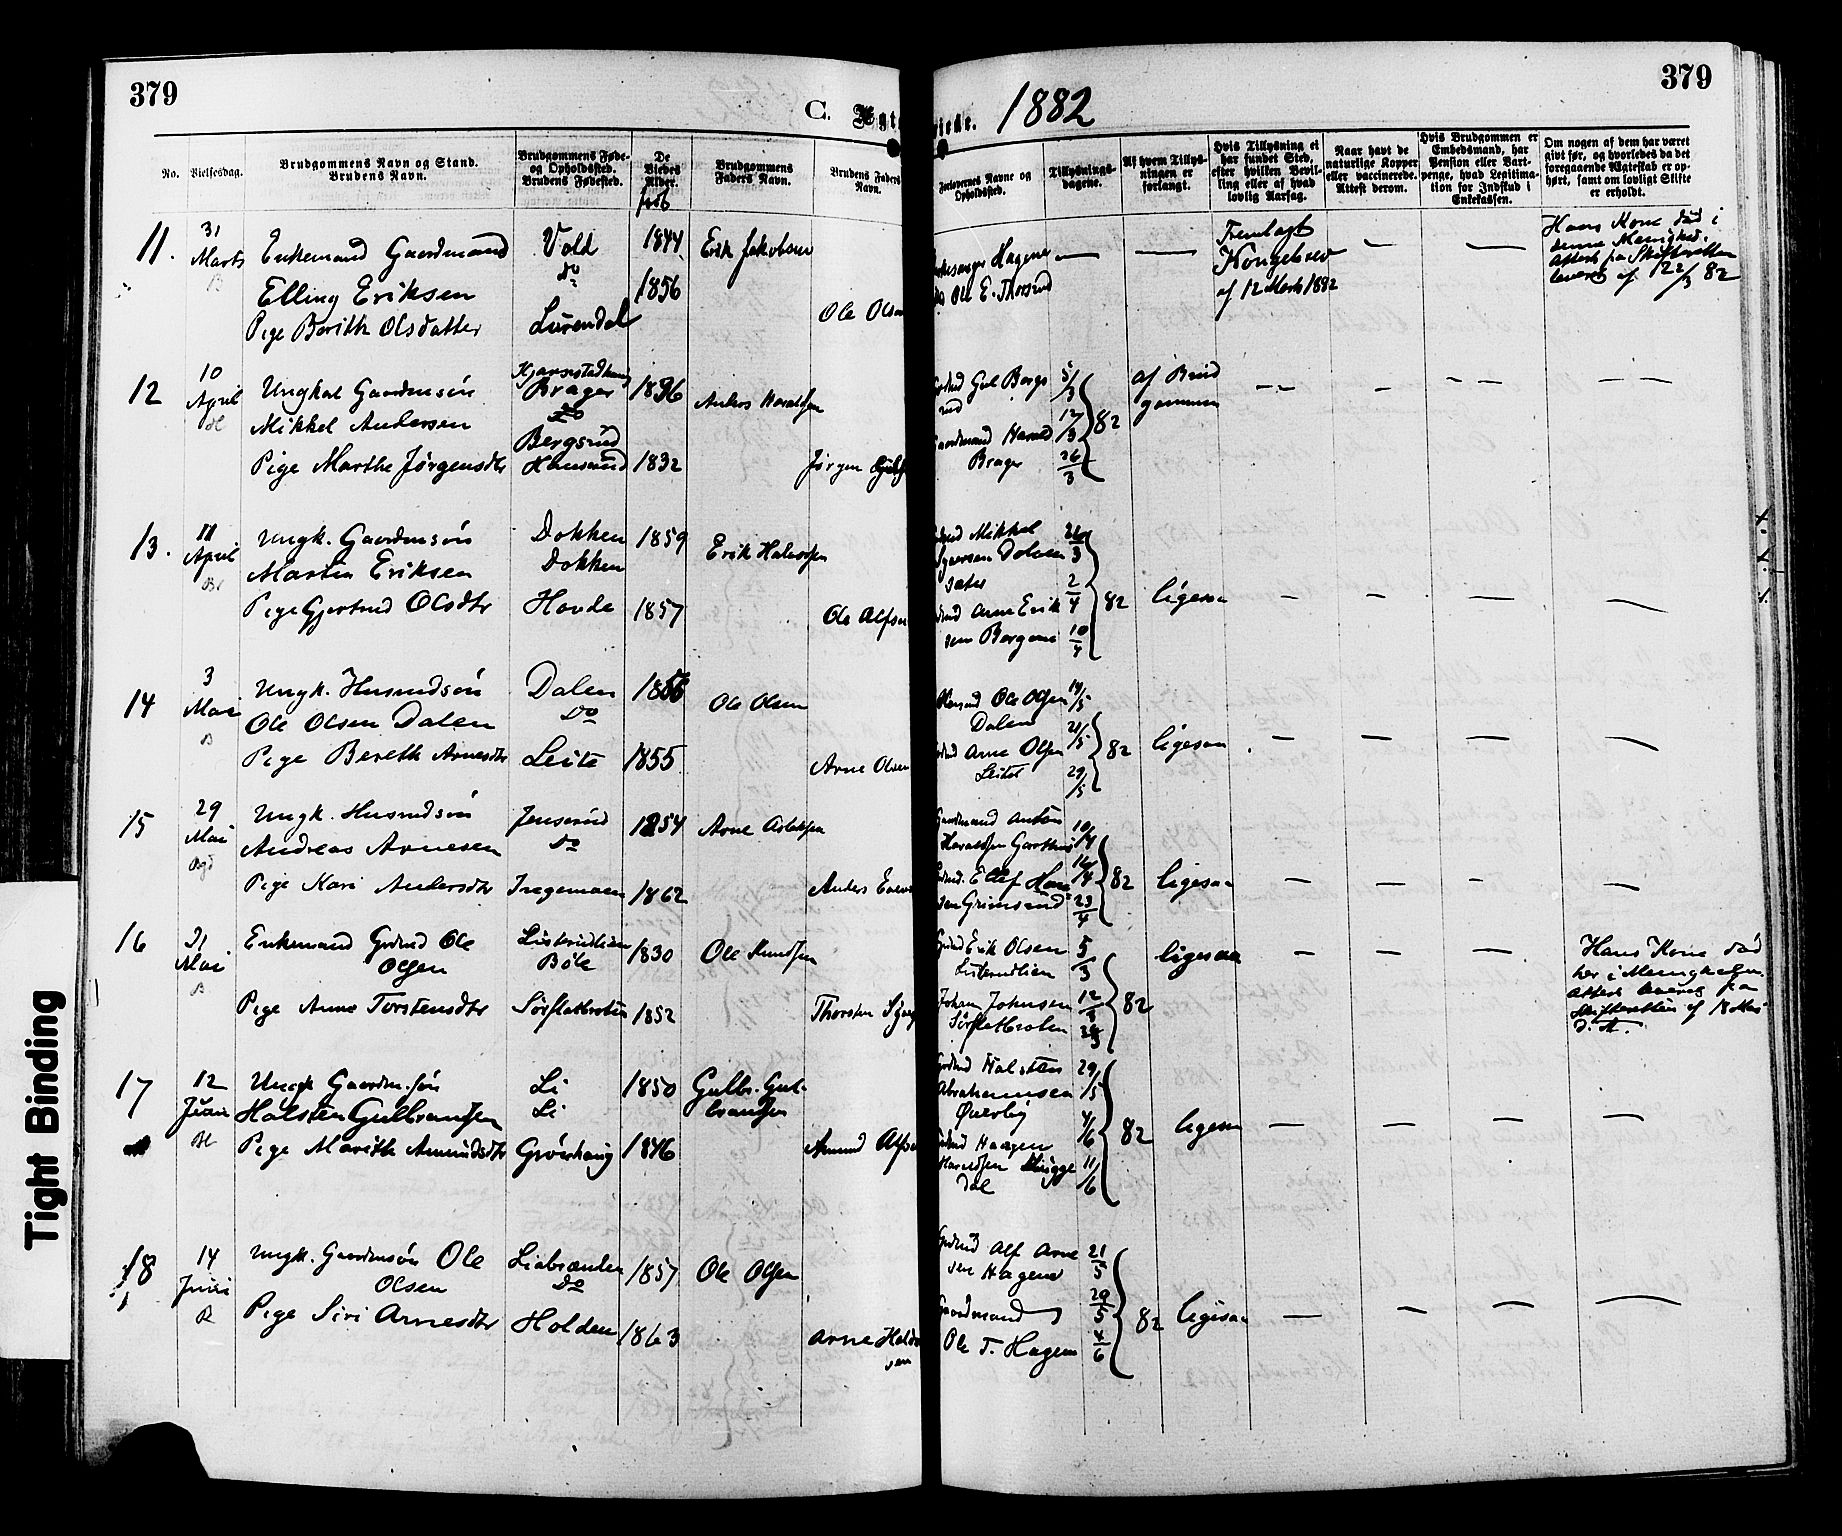 379
C. Ægt
viede. 1882
379
No.
Vielsesdag.
Brudgommens Navn og Stand.
Brudens Navn.
Brudgommens Føde-
og Opholdssted.
Brudens Fødested.
De
Viedes
Alder.
født
Brudgommens
Faders Navn.
Brudens Faders
Navn.
Forlovernes Navne og
Opholdssted.
Tillysnings-
dagene.
Af hvem Tillys-
ningen er
forlangt.
Hvis Tillysning ei
har fundet Sted,
efter hvilken Bevil-
ling eller af hvad
lovlig Aarsag.
Naar havt de
naturlige Kopper
eller vaccinerede.
Attest derom.
Hvis Brudgommen er
Embedsmand, har
Pension eller Vart-
penge, hvad Legitima-
tion for Indskud i
Enkekassen.
Om nogen af dem har været
givt før, og hvorledes da det
foregaaende Ægteskab er op-
hørt, samt om lovligt Skifte
er erholdt.
11.
31
Marts
B
Enkemand Gaardmand
Elling Eriksen
Pige Berith Olsdatter
Vold
do
Lurendal
1844
1856
Erik Jakobsen
Ole Olsen
Hagene
Ole E. Thorsrud
—
—
Fremlagt
Kongebrev
af 12 Marts 1882
—
—
Hans Kone død i
denne Menighed.
Attest fra Skifteretten
leveret af 122/3 82
12
10
April
Ungkarl Gaardmsøn
Mikkel Andersen
Pige Marthe Jørgensdtr
Brager
do
Bergsrud
1832
Anders
Jørgen
Gul Bergs
rud
Gaardmand Harald
Brager
5/3
12/3
26/3
82
af Brud
gommen
— —
—
— —
— —
13.
11
April
Br
Ungk. Gaardmsøn
Martin Eriksen
Pige Gjertrud Olsdtr
Dokken
Dokken
Hovde
1859
1857
Erik Halvorsen
Ole Alfsen
Mikkel
sæter
Arne Erik
sen Bergene
26/3
2/4
10/4
82
ligesaa
—
—
—
—
14
3
Mai
B
Ungk. Husmdsøn
Ole Olsen Dalen
Pige Bereth Arnesdtr
Dalen
Do
Leite
1855
Ole Olsen
Arne Olsen
Ole Olsen
Dalen
Arne Olsen
Leitet
14/5
21/5
29/5
82
ligesaa
—
—
—
—
15
29
Mai
Ungk. Husmdsøn
Andreas Arnesen
Pige Kari Andersdtr
Jensrud
Do
Ingemoen
1854
1862
Arne
Anders
Gaardmand Anton
Haraldsen
Grimsrud
10/4
16/4
23/4
82
ligesaa
—
—
—
—
16
31
Mai
B
Enkemand Grdmd Ole
Olsen
Pige Anne Torstensdtr
Listerudlien
Böle
1830
1852
Ole Knudsen
Thorsten
Grdmd Erik Olsen
Listerudlien
Johan Johnsen
5/3
12/3
26/3
82
ligesaa
—
—
—
Hans Kone død
her i Menigheden.
Attest leveret fra
Skifteretten af 18 Mai
d. A.
17
12
Juni
Bl
Ungk Gaardm.søn
Halsten Gulbrandsen
Pige Marith Amundsdtr
Li
Li
Grøvhaug
1850
1846
Gulbr. Gul-
brandsen
Amund Alfsen
Grdmd Halsten
Abrahamsen
Øverby
Grdmd Haagen
Haraldsen
dal
29/5
4/6
11/6
82
ligesaa
—
—
—
—
18
14
Juni
B
Ungk. Gaardmsøn Ole
Olsen
Pige Siri Arnesdtr
Liabrænden
Do
Holden
1857
1863
Ole Olsen
Arne Haldor
sen
Grdmd Alf Arne
sen Hagene
Gaardmand
Ole T. Hagene
21/5
29/5
4/6
82
ligesaa
—
—
—
—
Tight Binding